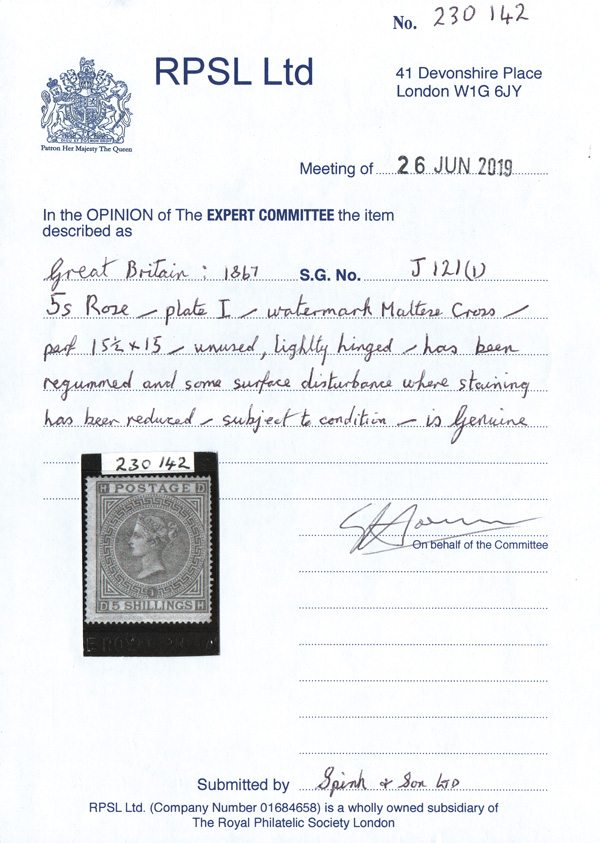 No. 230 142
RPSL Ltd
41 Devonshire Place
London W1G 6JY
Patron Her Majesty The Queen
Meeting of 26 JUN 2019
In the OPINION of The EXPERT COMMITTEE the item
described as
Great Britain : 1867 S.G. No. J121(1)
5s Rose – plate 1 – watermark Maltese Cross –
perf 15½ x 15 – unused, lighlty hinged – has been
regummed and some surface disturbance where staining
has been reduced – subject to condition – is Genuine
230 142
H POSTAGE D
1
D 5 SHILLINGS H
On behalf of the Committee
Submitted by Spink & Son LTD
RPSL Ltd. (Company Number 01684658) is a wholly owned subsidiary of
The Royal Philatelic Society London